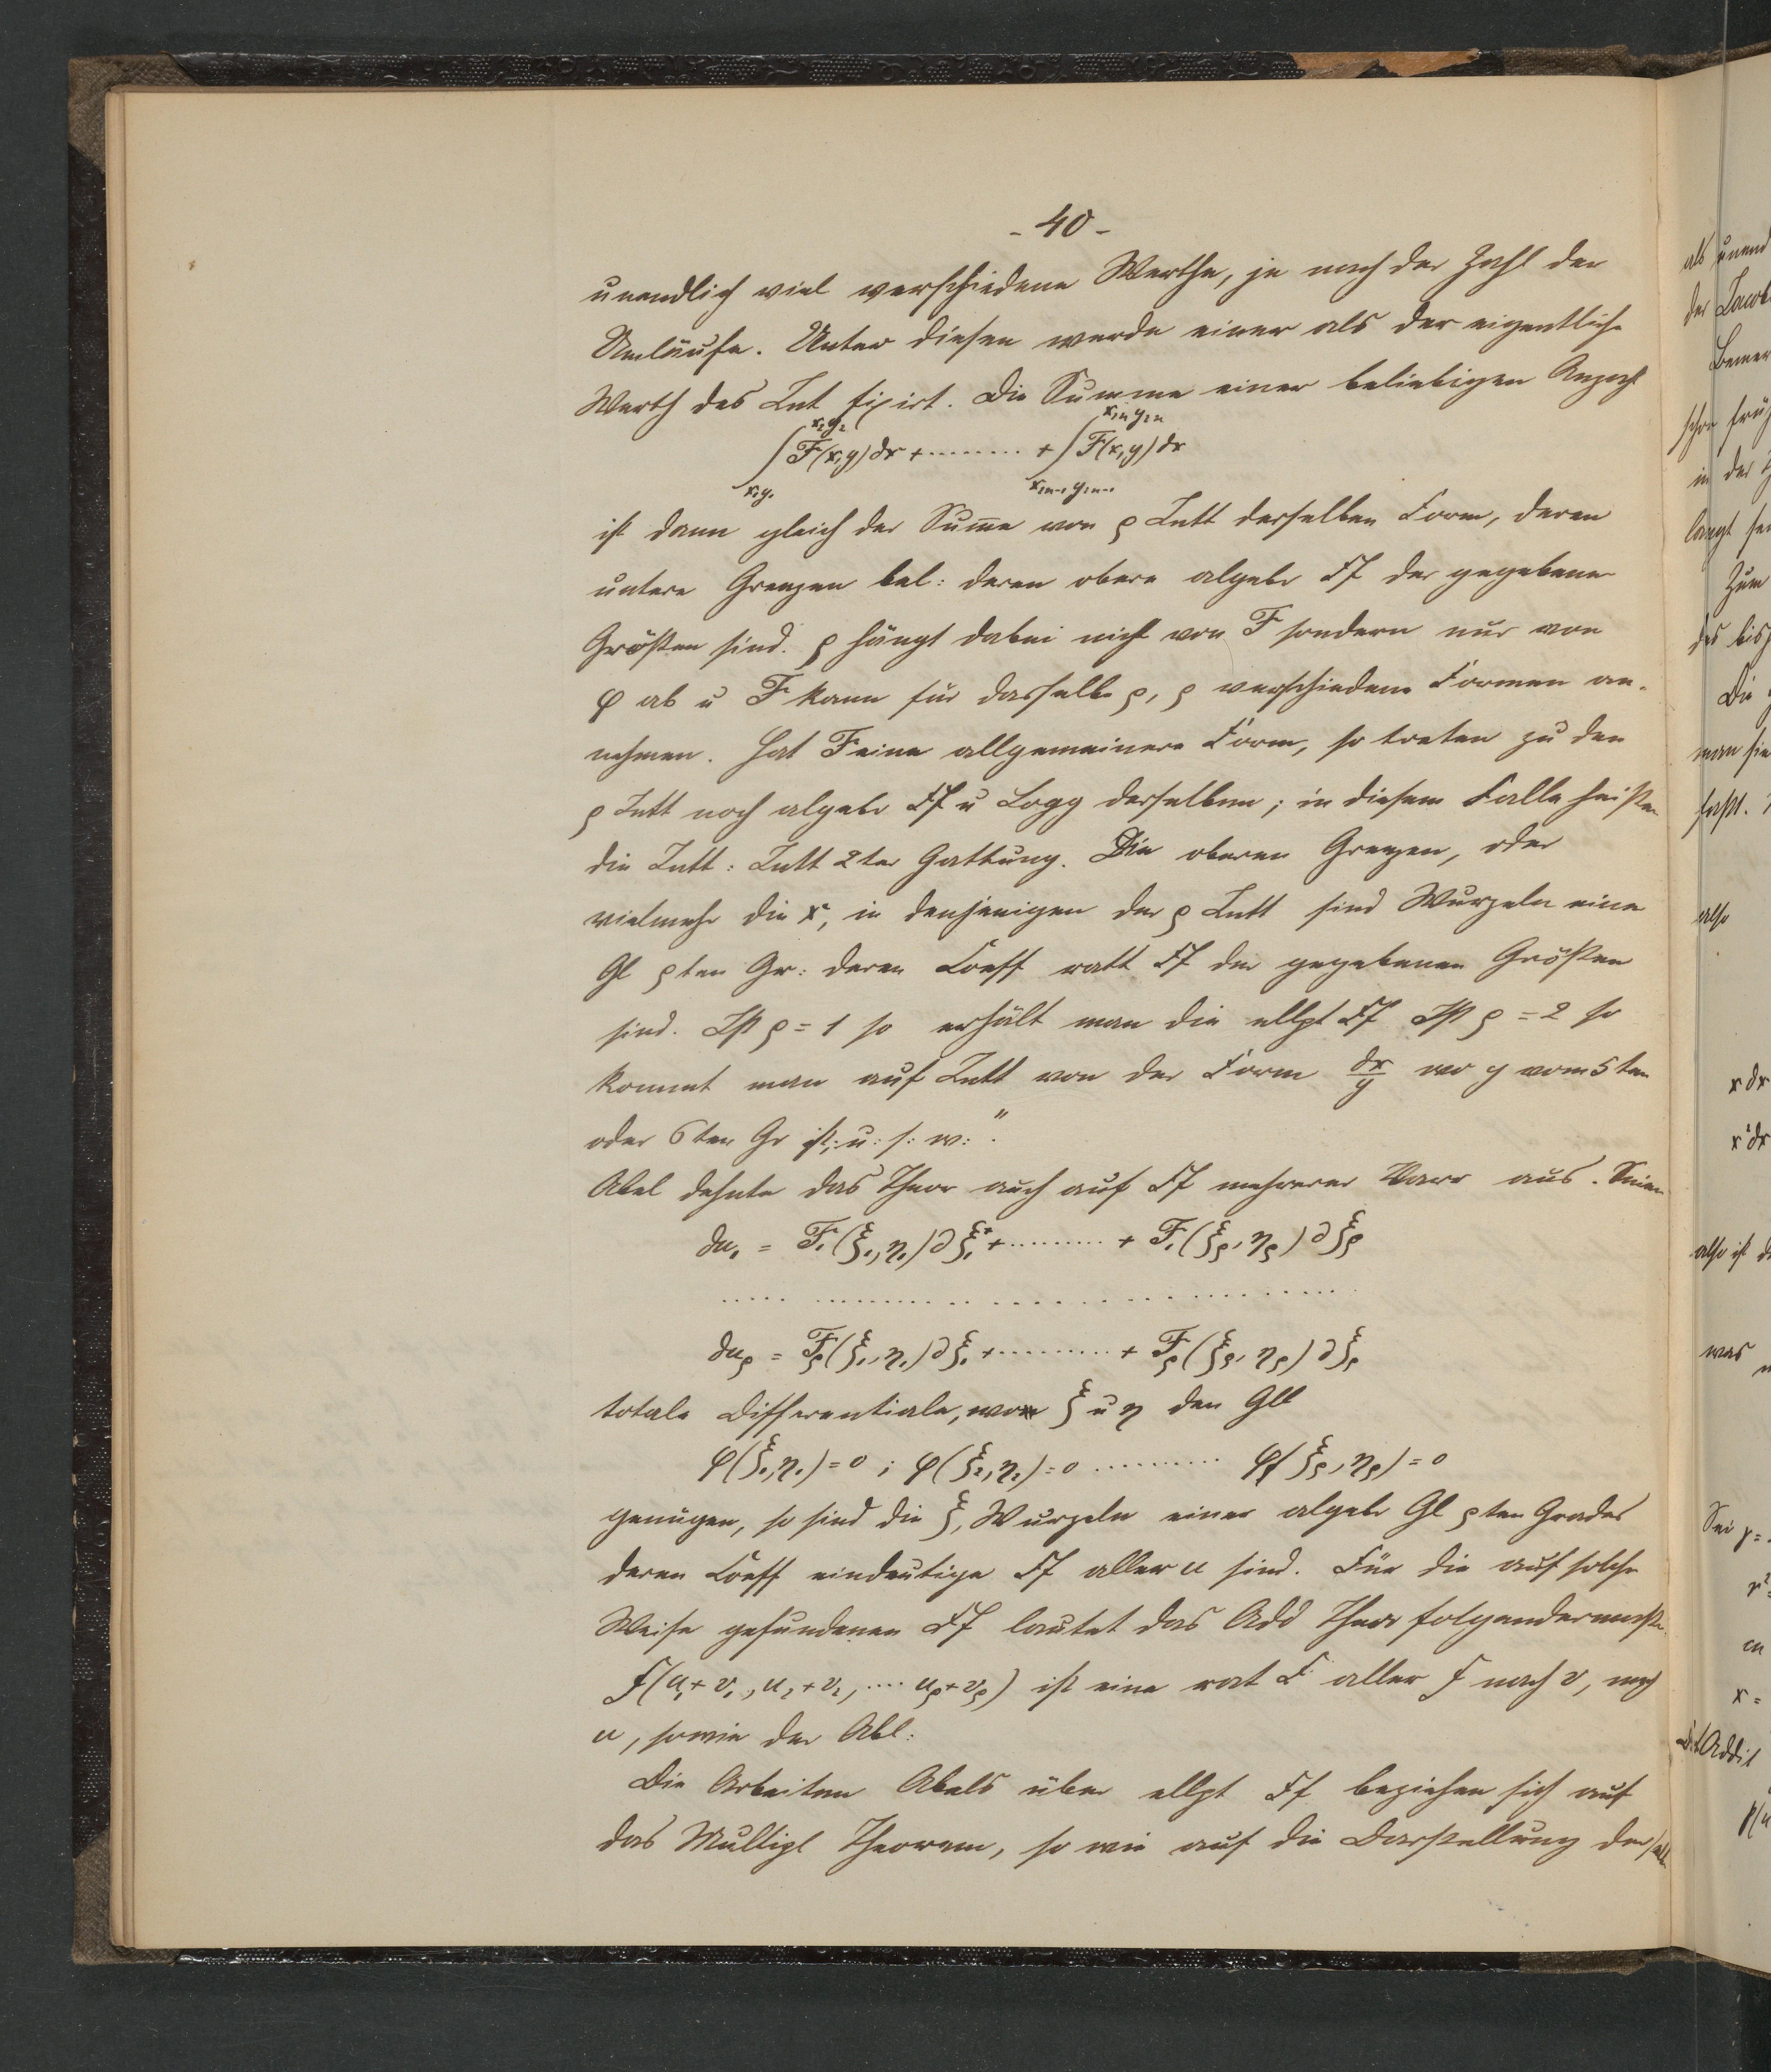 - 40 -
unendlich viel verschiedene Werthe, je nach der Zahl der
Umläufe. Unter diesen werde einer als der eigentliche
Werth des Int fixirt. Die Summe einer beliebigen Anzahl
∫_{x₁y₁}^{x₂y₂} F(x,y)dx + ......... + ∫_{x₂ₙ₋₁ y₂ₙ₋₁}^{x₂ₙ y₂ₙ} F(x,y)dx
ist dann gleich der Summe von ρ Intt derselben Form, deren
untere Grenzen bel: deren obere algebr Ff der gegebenen
Größen sind. ρ hängt dabei nicht von F sondern nur von
φ ab u F kann für dasselbe ρ, ρ verschiedene Formen an-
nehmen. Hat F eine allgemeinere Form, so treten zu den
ρ Intt noch algebr Ff u Logg derselben; in diesem Falle heißen
die Intt: Intt 2ter Gattung. Die oberen Grenzen, oder
vielmehr die x, in denjenigen der ρ Intt sind Wurzeln eine
Gl ρten Gr: deren Coeff ratt Ff der gegebenen Größen
sind. Ist ρ = 1 so erhält man die ellpt Ff Ist ρ = 2 so
kommt man auf Intt von der Form dx/y wo y vom 5ten
oder 6ten Gr ist; u: s: w: ".
Abel dehnte das Theor auch auf Ff mehrerer Varr aus. Seien
du₁ = F₁(ξ₁,η₁)∂ξ₁ + ......... + F₁(ξρ,ηρ)∂ξρ
..... ......... .. ...............
duρ = Fρ(ξ₁,η₁)∂ξ₁ + ......... + Fρ(ξρ,ηρ)∂ξρ
totale Differentiale, wo ξ u η den Gll
φ(ξ₁,η₁)=0 ; φ(ξ₂,η₂)=0 .......... φ(ξρ,ηρ)=0
genügen, so sind die ξ, Wurzeln einer algebr Gl ρten Grades
deren Coeff eindeutige Ff aller u sind. Für die auf solche
Weise gefundenen Ff lautet das Add Theor folgendermaßen
f(u₁+v₁, u₂+v₂, .... uρ+vρ) ist eine rat F aller f nach v, nach
u, sowie der Abl:
Die Arbeiten Abels über ellpt Ff beziehen sich auf
das Multipl Theorem, so wie auf die Darstellung derselb